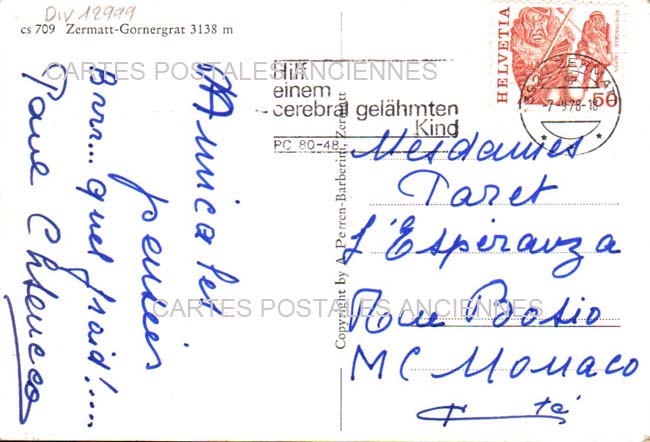 Div 12999
cs 709 Zermatt-Gornergrat 3138 m
CARTES POSTALES ANCIENNES
Amicales
pensées
Brrr... quel froid!....
Paul
Copyright by A. Perren-Barberini, Zermatt
Hilf
einem
cerebral gelähmten
Kind
PC 80-48
HELVETIA
50
ZERMATT
-7-9.78-18
Mesdames
Paret
L'Espéranza
Rue Bosio
MC Monaco
CARTES POSTALES ANCIENNES